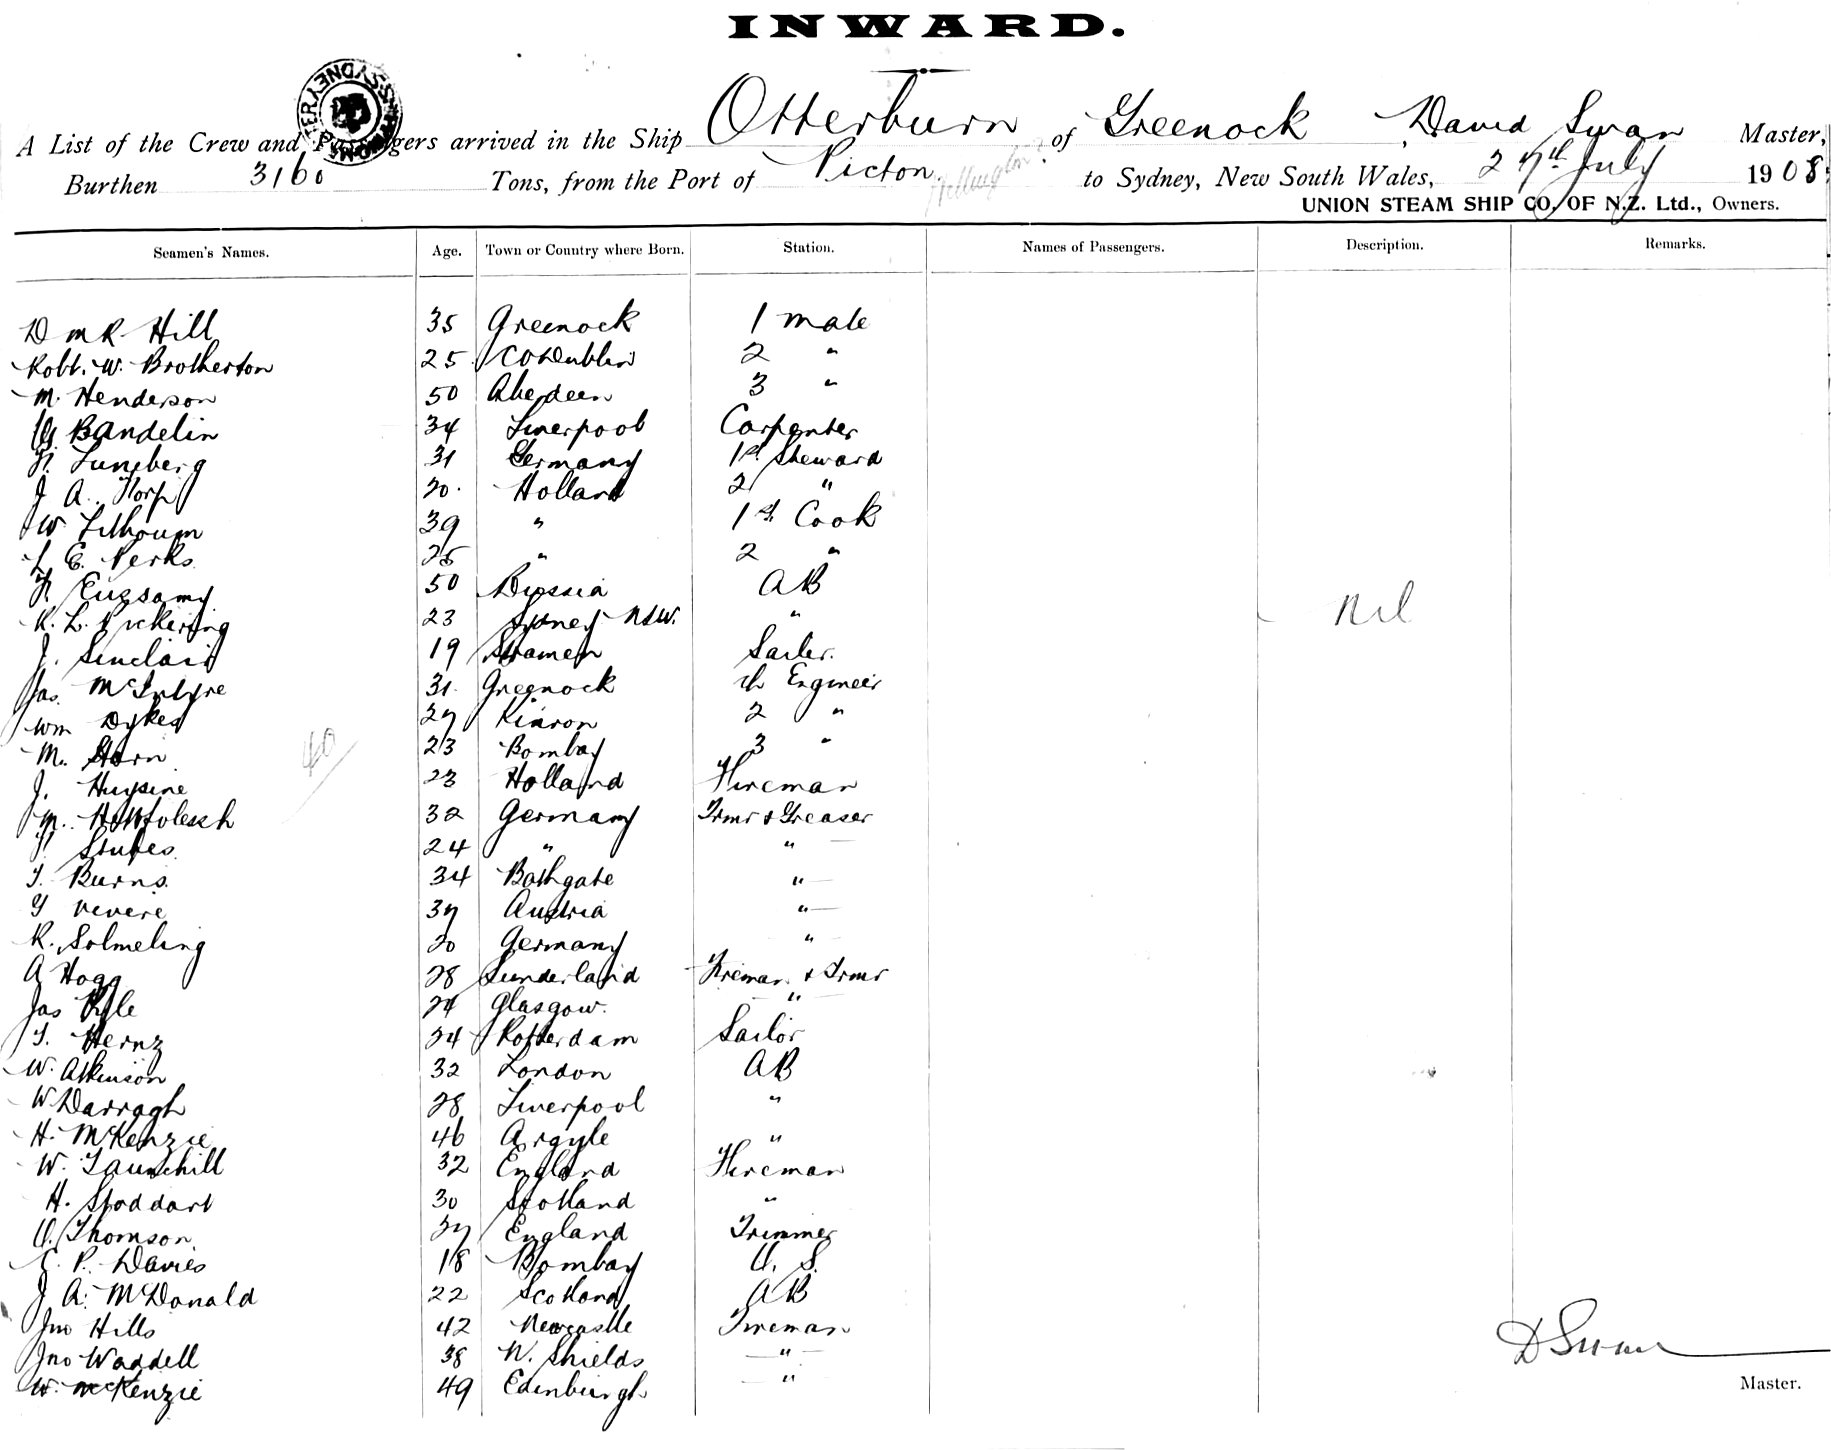 INWARD.
A List of the Crew and Passengers arrived in the Ship Otterburn of Greenock, David Swan Master,
Burthen 3160 Tons, from the Port of Picton Wellington to Sydney, New South Wales, 27th July 1908.
UNION STEAM SHIP CO. OF N.Z. Ltd., Owners.
Seamen's Names. Age. Town or Country where Born. Station. Names of Passengers. Description. Remarks.
D McR Hill 35 Greenock 1 Mate
Robt. W. Brotherton 25 Co Dublin 2 "
M. Henderson 50 Aberdeen 3 "
Bandelin 34 Liverpool Carpenter
Luneberg 31 Germany 1st Steward
J A. 20 Holland 2 "
W 39 " 1st Cook
E. Perks 25 " 2 "
50 Russia AB
R. L. Pickering 23 Sydney NSW. "
Nil
J. Sinclair 19 Sailor.
Jas. McIntyre 31 Greenock Engineer
Wm Dykes 27 2 "
M. Horn 23 Bombay 3 "
40
J. Huysine 23 Holland Fireman
M. 32 Germany Trmr & Greaser
Stubes 24 " "
T. Burns. 34 Bathgate "
Vevere 37 Austria "
R. Solmeling 20 Germany "
A Hogg 28 Sunderland Fireman & Trmr
Jas 24 Glasgow. "
34 Rotterdam Sailor
W. Atkinson 32 London AB
W Darragh 28 Liverpool "
H. McKenzie 46 Argyle "
W. 32 England Fireman
H. Stoddart 30 Scotland "
Thomson 37 England Trimmer
P. Davies 18 Bombay O. S.
J A. McDonald 22 Scotland AB
Jno Hills 42 Newcastle Fireman
Jno Waddell 38 N. Shields "
W. McKenzie 49 Edinburgh "
D Swan
Master.